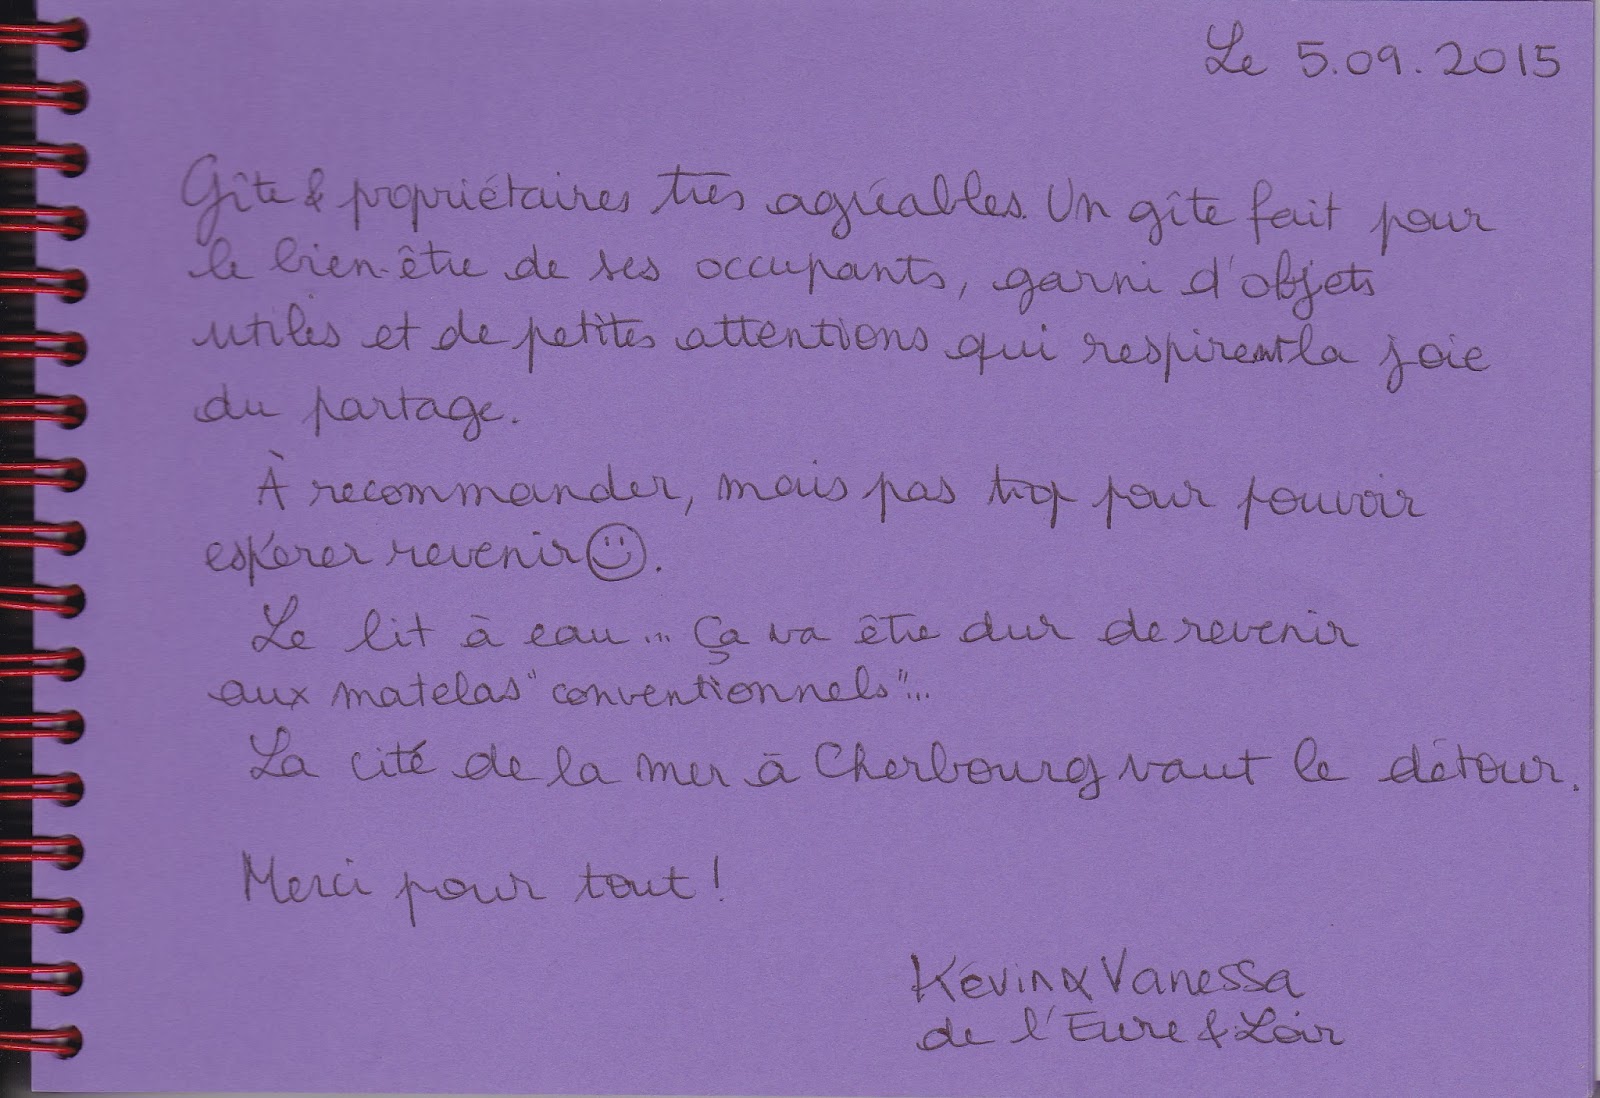 Le 5.09.2015
Gîte & propriétaires très agréables. Un gîte fait pour
le bien-être de ses occupants, garni d'objets
utiles et de petites attentions qui respirent la joie
du partage.
À recommander, mais pas trop pour pouvoir
espérer revenir☺.
Le lit à eau... Ça va être dur de revenir
aux matelas "conventionnels"...
La cité de la mer à Cherbourg vaut le détour.
Merci pour tout !
Kévin & Vanessa
de l'Eure & Loir